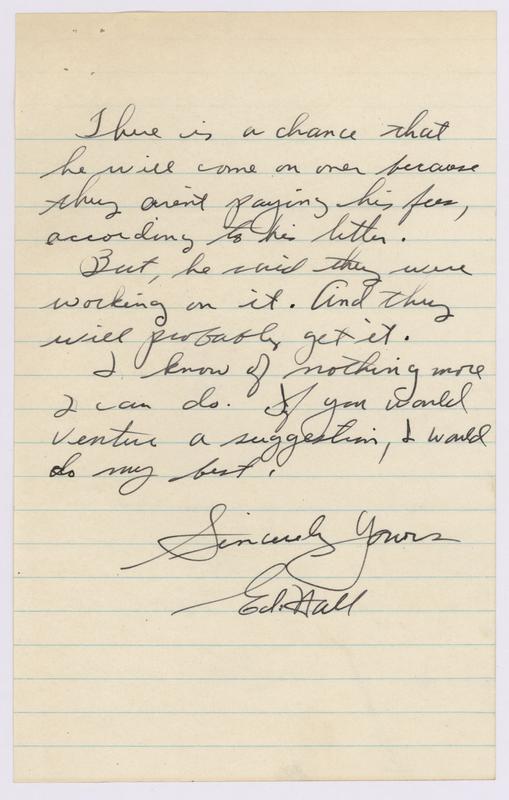 There is a chance that
he will come on over because
they arent paying his fees,
according to his letter.
But, he said they were
working on it. And they
will probably get it.
I know of nothing more
I can do. If you would
venture a suggestion, I would
do my best.
Sincerely Yours
Ed. Hall